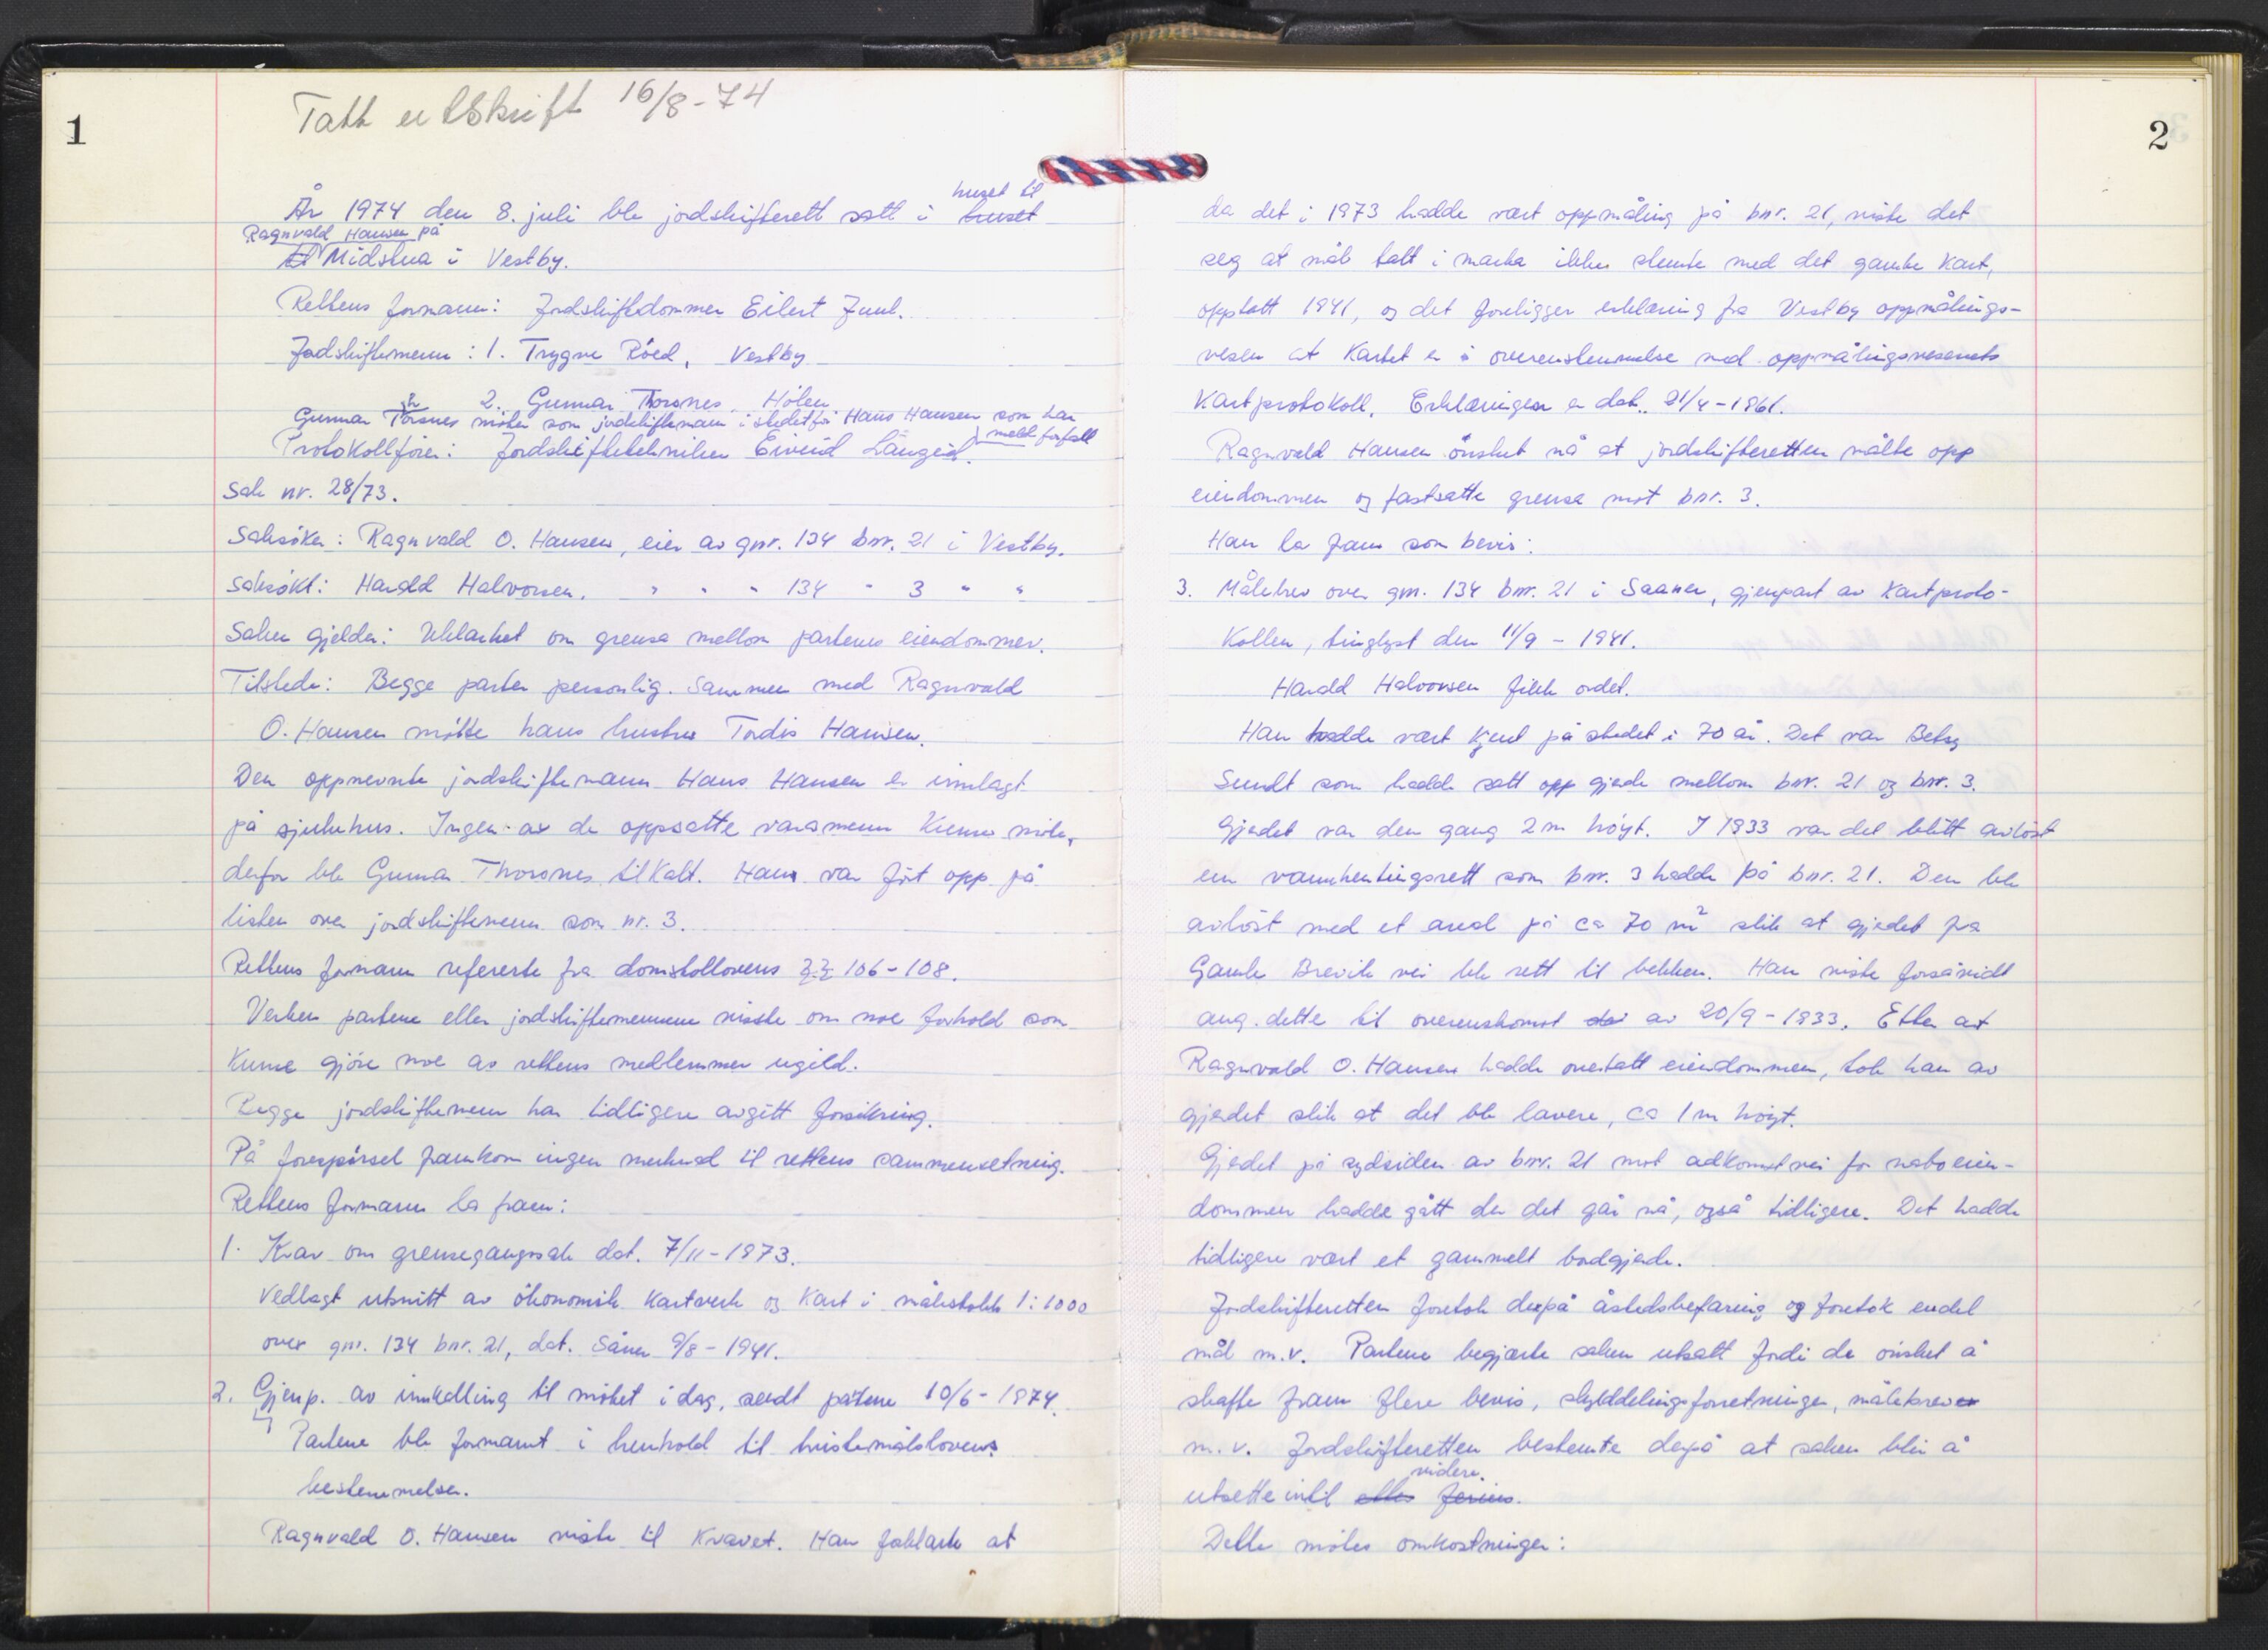 1
Tatt utskrift 16/8-74
huset til
År 1974 den 8. juli ble jordskifterett satt i huset
Ragnvald Hansen på
til Midskua i Vestby.
Rettens formann: Jordskiftedommer Eilert Juul.
Jordskiftemenn: 1. Trygve Röed, Vestby
2. Gunnar Thorsnes, Hölen
Gunnar Thorsnes möter som jordskiftemann i stedet for Hans Hansen som har
meldt forfall
Protokollförer: Jordskiftetekniker Eivind Langeid.
Sak nr. 28/73.
Saksöker: Ragnvald O. Hansen, eier av gnr. 134 bnr. 21 i Vestby.
Saksökt: Harald Halvorsen, " " " 134 " 3 " "
Saken gjelder: Uklarhet om grensa mellom partenes eiendommer.
Tilstede: Begge parter personlig. Sammen med Ragnvald
O. Hansen mötte hans hustru Tordis Hansen.
Den oppnevnte jordskiftemann Hans Hansen er innlagt
på sjukehus. Ingen av de oppsatte varamenn kunne möte,
derfor ble Gunnar Thorsnes tilkalt. Hans var fört opp på
listen over jordskiftemenn som nr. 3.
Rettens formann refererte fra domstollovens §§ 106-108.
Verken partene eller jordskiftemennene visste om noe forhold som
kunne gjöre noe av rettens medlemmer ugild.
Begge jordskiftemenn har tidligere avgitt forsikring.
På forespörsel framkom ingen merknad til rettens sammensetning.
Rettens formann la fram:
1. Krav om grensegangssak dat. 7/11-1973.
Vedlagt utsnitt av ökonomisk kartverk og kart i målestokk 1:1000
over gnr. 134 bnr. 21, dat. Såner 9/8-1941.
2. Gjenp. av innkalling til mötet i dag, sendt partene 10/6-1974.
Partene ble formant i henhold til tvistemålslovens
bestemmelser.
Ragnvald O. Hansen viste til kravet. Han forklarte at
2
da det i 1973 hadde vært oppmåling på bnr. 21, viste det
seg at mål tatt i marka ikke stemte med det gamle kart,
opptatt 1941, og det foreligger erklæring fra Vestby oppmålings-
vesen at kartet er i overenstemmelse med oppmålingsvesenets
kartprotokoll. Erklæringen er dat. 21/4-1961.
Ragnvald Hansen önsket nå at jordskifteretten målte opp
eiendommen og fastsatte grensa mot bnr. 3.
Han la fram som bevis:
3. Målebrev over gnr. 134 bnr. 21 i Saaner, gjenpart av kartproto-
kollen, tinglyst den 11/9-1941.
Harald Halvorsen fikk ordet.
Han hadde vært kjent på stedet i 70 år. Det var Betsy
Sundt som hadde satt opp gjerde mellom bnr. 21 og bnr. 3.
Gjerdet var den gang 2 m höyt. I 1933 var det blitt avlöst
en vannhentingsrett som bnr. 3 hadde på bnr. 21. Den ble
avlöst med et areal på ca 70 m² slik at gjerdet fra
Gamle Brevik vei ble rett til bekken. Han viste forsåvidt
ang. dette til overenskomst av 20/9-1933. Etter at
Ragnvald O. Hansen hadde overtatt eiendommen, tok han av
gjerdet slik at det ble lavere, ca 1 m höyt.
Gjerdet på sydsiden av bnr. 21 mot adkomstvei for naboeien-
dommen hadde gått der det går nå, også tidligere. Det hadde
tidligere vært et gammelt bordgjerde.
Jordskifteretten foretok derpå åstedsbefaring og foretok endel
mål m.v. Partene begjærte saken utsatt fordi de önsket å
skaffe fram flere bevis, skylddelingsforretninger, målebrever
m.v. Jordskifteretten bestemte derpå at saken blir å
videre.
utsette intil etter ferien.
Dette mötes omkostninger: